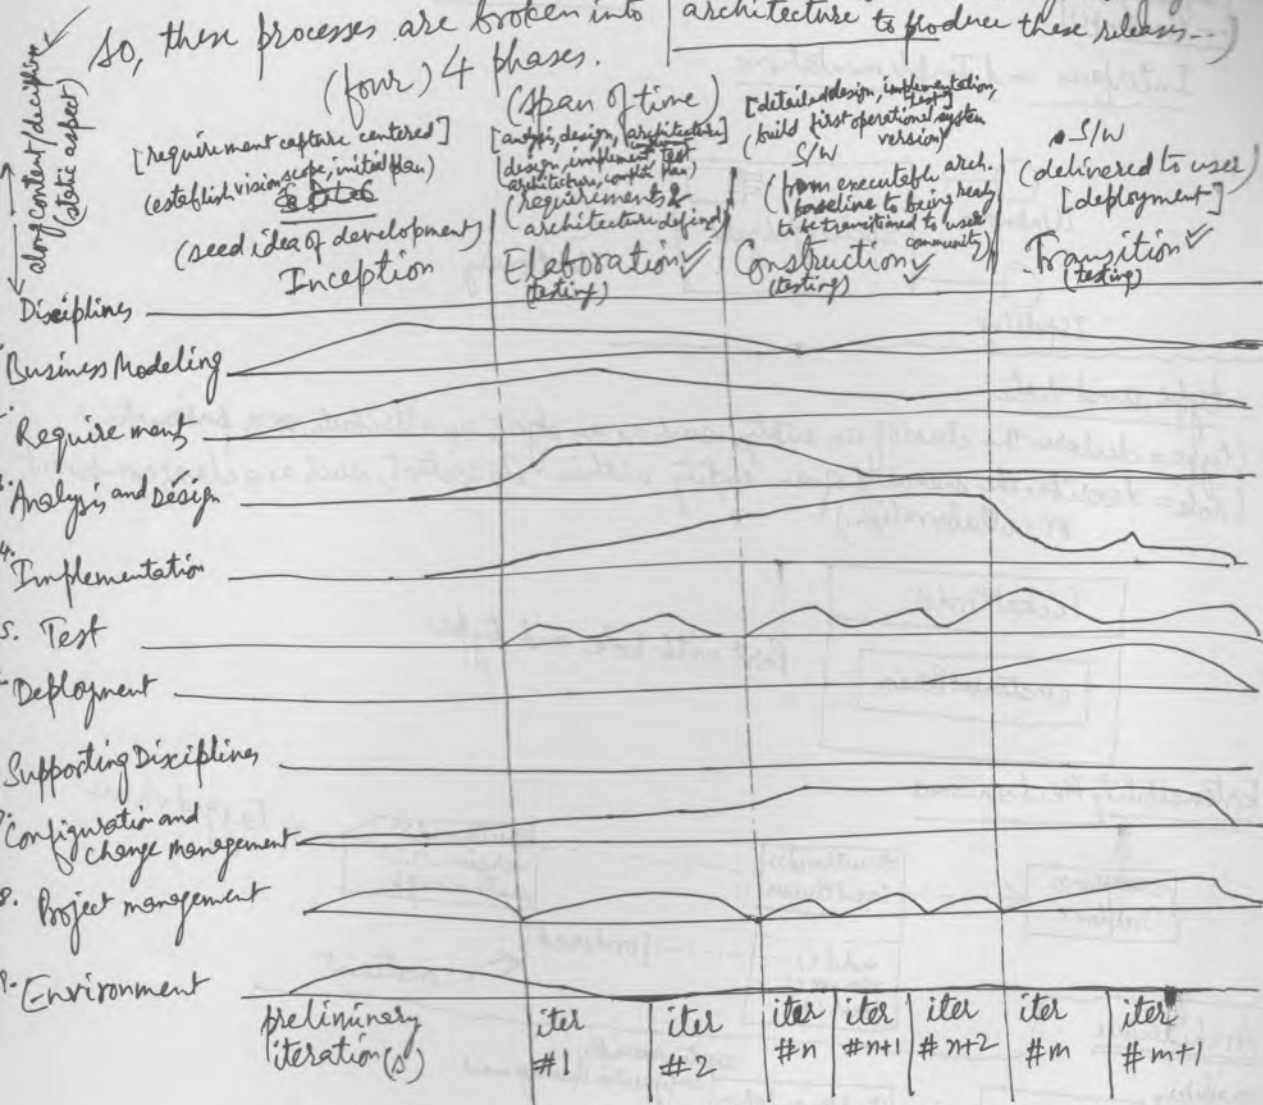 So, these processes are broken into
(four) 4 phases.
architecture to produce these releases...
along content/discipline
(static aspect)
[requirement capture centered]
(establish vision, scope, initial plan)
(seed idea of development)
Inception
(span of time)
[analysis, design, architecture]
design, implement, test
architecture, complete plan)
(requirements &
architecture defined)
Elaboration ✓
(testing)
[detailed design, implementation,
test]
(build first operational system
version)
S/W
(from executable arch.
baseline to being ready
to be transitioned to user
community)
Construction ✓
(testing)
S/W
(delivered to user)
[deployment]
Transition ✓
(testing)
Disciplines
Business Modeling
Requirement
Analysis and Design
4. Implementation
5. Test
Deployment
Supporting Disciplines
7. Configuration and
change management
8. Project management
9. Environment
preliminary
iteration(s)
iter
#1
iter
#2
iter
#n
iter
#n+1
iter
#n+2
iter
#m
iter
#m+1